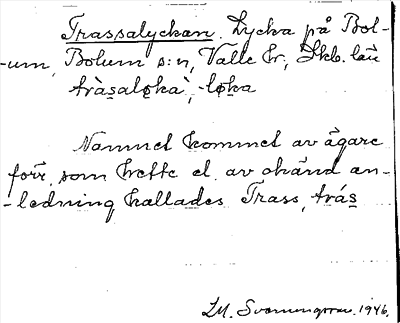 Trassalyckan. Lycka på Bol-
-um, Bolum s:n, Valle hr, Skb. län
tràsalø̱ka`, -lø̱ka
Namnet kommet av ägare
förr, som hette el. av okänd an-
-ledning kallades Trass, trás̱
1946.